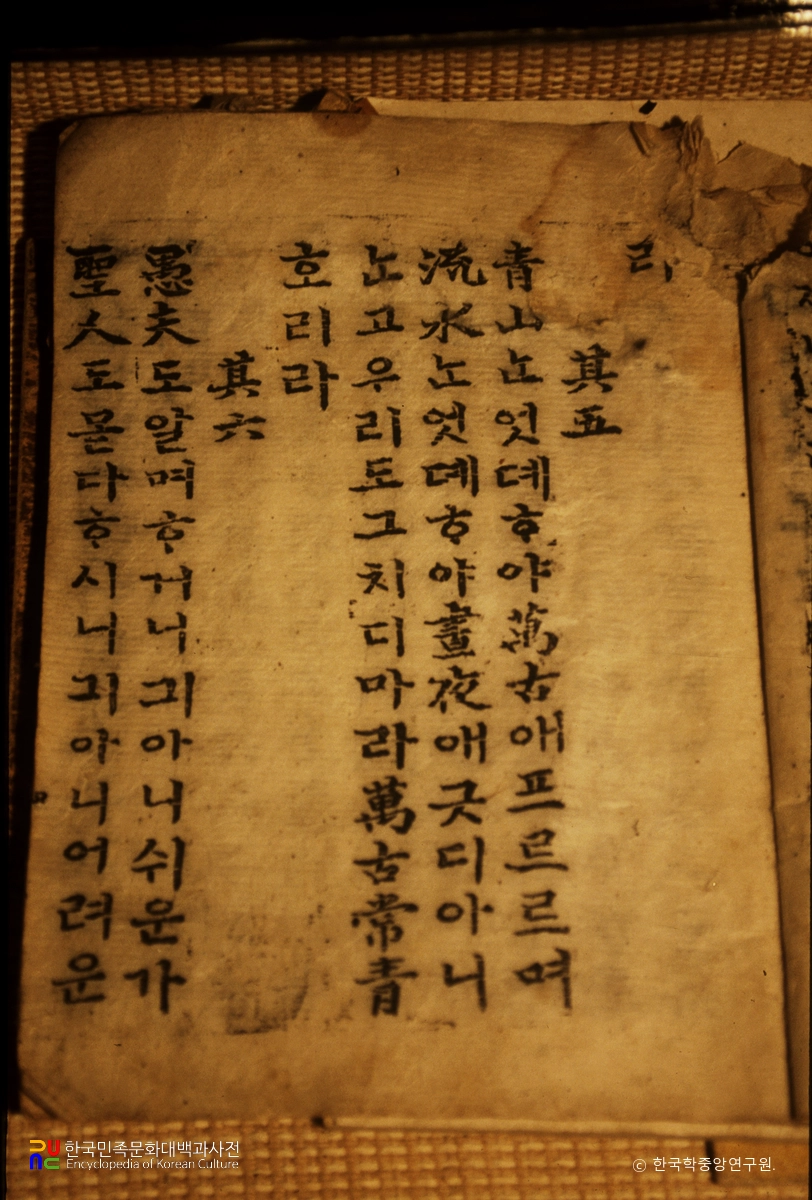 라
其五
青山ᄂᆞᆫ엇뎨ᄒᆞ야萬古애프르르며
流水ᄂᆞᆫ엇뎨ᄒᆞ야晝夜애긋디아니
ᄂᆞᆫ고우리도그치디마라萬古常青
호리라
其六
愚夫도알며ᄒᆞ거니긔아니쉬운가
聖人도몯다ᄒᆞ시니긔아니어려운
한국민족문화대백과사전
Encyclopedia of Korean Culture
© 한국학중앙연구원.